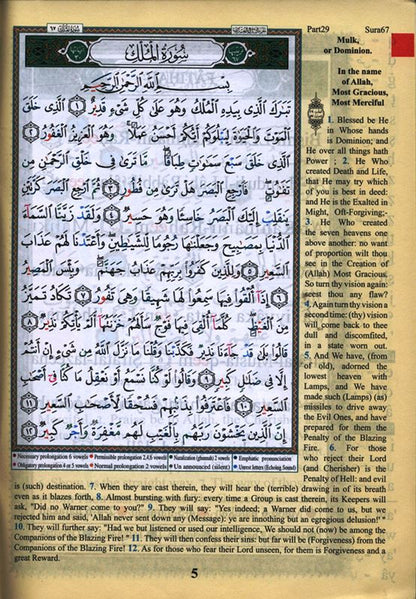 Part29 Sura67
Mulk,
or Dominion.
In the name
of Allah,
Most Gracious,
Most Merciful
سُورَةُ الْمُلْكِ
بِسْمِ اللَّهِ الرَّحْمَٰنِ الرَّحِيمِ
تَبَارَكَ الَّذِي بِيَدِهِ الْمُلْكُ وَهُوَ عَلَىٰ كُلِّ شَيْءٍ قَدِيرٌ ١ الَّذِي خَلَقَ
الْمَوْتَ وَالْحَيَاةَ لِيَبْلُوَكُمْ أَيُّكُمْ أَحْسَنُ عَمَلًا وَهُوَ الْعَزِيزُ الْغَفُورُ ٢
الَّذِي خَلَقَ سَبْعَ سَمَاوَاتٍ طِبَاقًا مَّا تَرَىٰ فِي خَلْقِ الرَّحْمَٰنِ مِن
تَفَاوُتٍ فَارْجِعِ الْبَصَرَ هَلْ تَرَىٰ مِن فُطُورٍ ٣ ثُمَّ ارْجِعِ الْبَصَرَ كَرَّتَيْنِ
يَنقَلِبْ إِلَيْكَ الْبَصَرُ خَاسِئًا وَهُوَ حَسِيرٌ ٤ وَلَقَدْ زَيَّنَّا السَّمَاءَ
الدُّنْيَا بِمَصَابِيحَ وَجَعَلْنَاهَا رُجُومًا لِّلشَّيَاطِينِ وَأَعْتَدْنَا لَهُمْ عَذَابَ
السَّعِيرِ ٥ وَلِلَّذِينَ كَفَرُوا بِرَبِّهِمْ عَذَابُ جَهَنَّمَ وَبِئْسَ الْمَصِيرُ
٦ إِذَا أُلْقُوا فِيهَا سَمِعُوا لَهَا شَهِيقًا وَهِيَ تَفُورُ ٧ تَكَادُ تَمَيَّزُ
مِنَ الْغَيْظِ كُلَّمَا أُلْقِيَ فِيهَا فَوْجٌ سَأَلَهُمْ خَزَنَتُهَا أَلَمْ يَأْتِكُمْ نَذِيرٌ ٨
قَالُوا بَلَىٰ قَدْ جَاءَنَا نَذِيرٌ فَكَذَّبْنَا وَقُلْنَا مَا نَزَّلَ اللَّهُ مِن شَيْءٍ إِنْ أَنتُمْ
إِلَّا فِي ضَلَالٍ كَبِيرٍ ٩ وَقَالُوا لَوْ كُنَّا نَسْمَعُ أَوْ نَعْقِلُ مَا كُنَّا فِي أَصْحَابِ
السَّعِيرِ ١٠ فَاعْتَرَفُوا بِذَنبِهِمْ فَسُحْقًا لِّأَصْحَابِ السَّعِيرِ ١١
إِنَّ الَّذِينَ يَخْشَوْنَ رَبَّهُم بِالْغَيْبِ لَهُم مَّغْفِرَةٌ وَأَجْرٌ كَبِيرٌ ١٢
Necessary prolongation 6 vowels Permissible prolongation 2,4,6 vowels Nazalization (ghunnah) 2 vowels Emphatic pronunciation
Obligatory prolongation 4 or 5 vowels Normal prolongation 2 vowels Un announced (silent) Unrest letters (Echoing Sound)
1. Blessed be He
in Whose hands
is Dominion; and
He over all things hath
Power ; 2. He Who
created Death and Life,
that He may try which
of you is best in deed:
and He is the Exalted in
Might, Oft-Forgiving;-
3. He Who created
the seven heavens one
above another: no want
of proportion wilt thou
see in the Creation of
(Allah) Most Gracious.
So turn thy vision again:
seest thou any flaw?
4. Again turn thy vision a
second time: (thy) vision
will come back to thee
dull and discomfited,
in a state worn out.
5. And We have, (from
of old), adorned the
lowest heaven with
Lamps, and We have
made such (Lamps) (as)
missiles to drive away
the Evil Ones, and have
prepared for them the
Penalty of the Blazing
Fire. 6. For those
who reject their Lord
(and Cherisher) is the
Penalty of Hell: and evil
is (such) destination. 7. When they are cast therein, they will hear the (terrible) drawing in of its breath
even as it blazes forth, 8. Almost bursting with fury: every time a Group is cast therein, its Keepers will
ask, "Did no Warner come to you?" 9. They will say: "Yes indeed; a Warner did come to us, but we
rejected him and said, 'Allah never sent down any (Message): ye are innothing but an egregious delusion!' "
10. They will further say: "Had we but listened or used our intelligence, We should not (now) be among the
Companions of the Blazing Fire! " 11. They will then confess their sins: but far will be (Forgiveness) from the
Companions of the Blazing Fire! 12. As for those who fear their Lord unseen, for them is Forgiveness and a
great Reward.
5